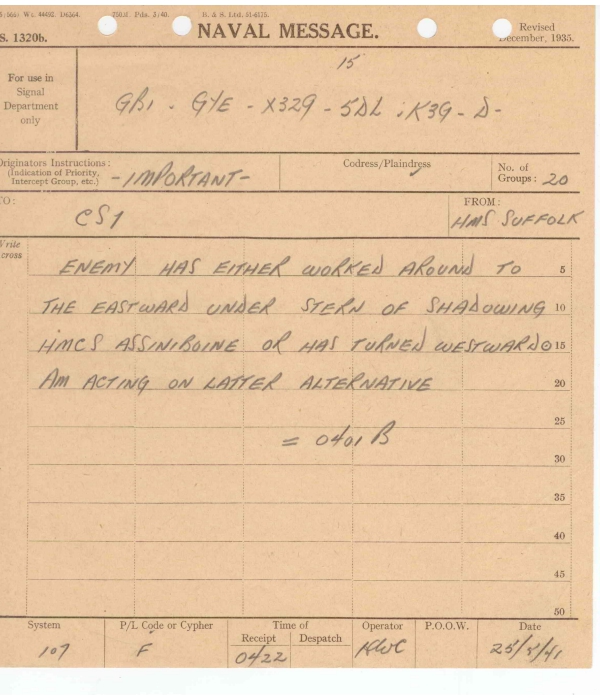 5661 Wt. 44492. D6364. 750M. Pds. 3/40. B. & S. Ltd. 51-6175.
S. 1320b.
NAVAL MESSAGE.
Revised
December, 1935.
15
For use in
Signal
Department
only
GB1 - GYE - X329 - 5DL : K3G - D -
Originators Instructions:
(Indication of Priority,
Intercept Group, etc.)
-IMPORTANT-
Codress/Plaindress
No. of
Groups: 20
TO:
CS1
FROM:
HMS SUFFOLK
Write
cross
ENEMY HAS EITHER WORKED AROUND TO 5
THE EASTWARD UNDER STERN OF SHADOWING 10
HMCS ASSINIBOINE OR HAS TURNED WESTWARD⊙ 15
AM ACTING ON LATTER ALTERNATIVE 20
25
= 0401 B
30
35
40
45
50
System P/L Code or Cypher Time of Operator P.O.O.W. Date
Receipt Despatch
107 F 0422 KWC 25/5/41